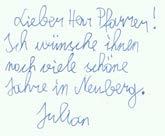 Lieber Herr Pfarrer!
Ich wünsche ihnen
noch viele schöne
Jahre in Neuberg.
Julian